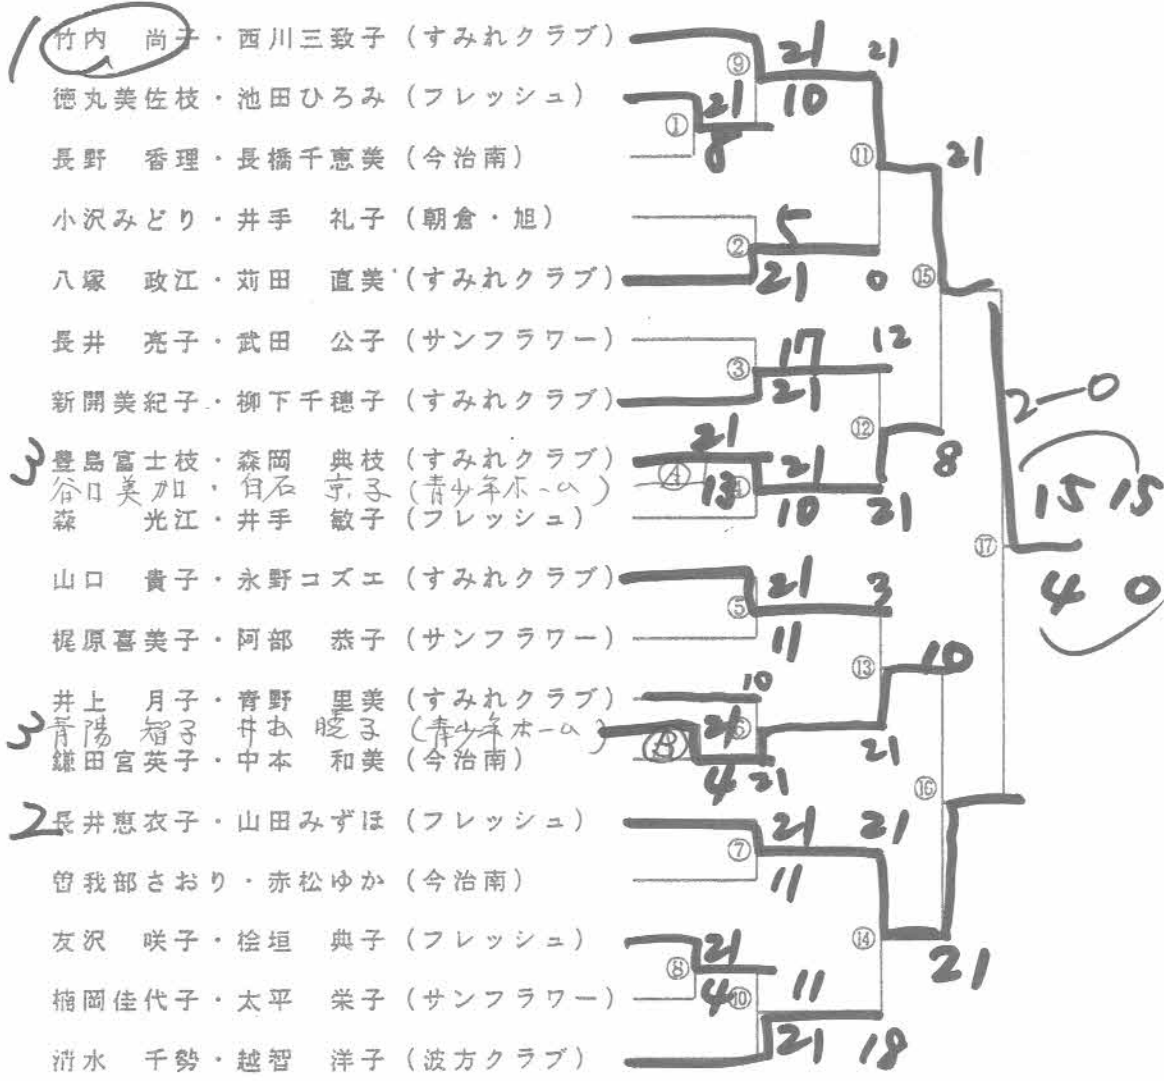 1 竹内 尚子・西川三致子 (すみれクラブ)
徳丸美佐枝・池田ひろみ (フレッシュ)
長野 香理・長橋千恵美 (今治南)
小沢みどり・井手 礼子 (朝倉・旭)
八塚 政江・苅田 直美 (すみれクラブ)
長井 亮子・武田 公子 (サンフラワー)
新開美紀子・柳下千穂子 (すみれクラブ)
3 豊島富士枝・森岡 典枝 (すみれクラブ)
谷口美加・白石 京子 (青少年ホーム)
森 光江・井手 敏子 (フレッシュ)
山口 貴子・永野コズエ (すみれクラブ)
梶原喜美子・阿部 恭子 (サンフラワー)
井上 月子・青野 里美 (すみれクラブ)
3 青陽 智子 暁子 (青少年ホーム)
鎌田宮英子・中本 和美 (今治南)
2 長井恵衣子・山田みずほ (フレッシュ)
曽我部さおり・赤松ゆか (今治南)
友沢 咲子・桧垣 典子 (フレッシュ)
楠岡佳代子・太平 栄子 (サンフラワー)
清水 千勢・越智 洋子 (波方クラブ)
⑨ 21 10 21
① 21 8
⑪ 21
② 5 21 0
⑮
③ 17 21 12
⑫ 8
Ⓐ 21 13
④ 21 10 21
⑰ 2-0
15 15
4 0
⑤ 21 11 3
⑬ 10
⑥ 10 21 21
Ⓑ 21 4
⑯
⑦ 21 11 21
⑭ 21
⑧ 21 4
⑩ 11 21 18